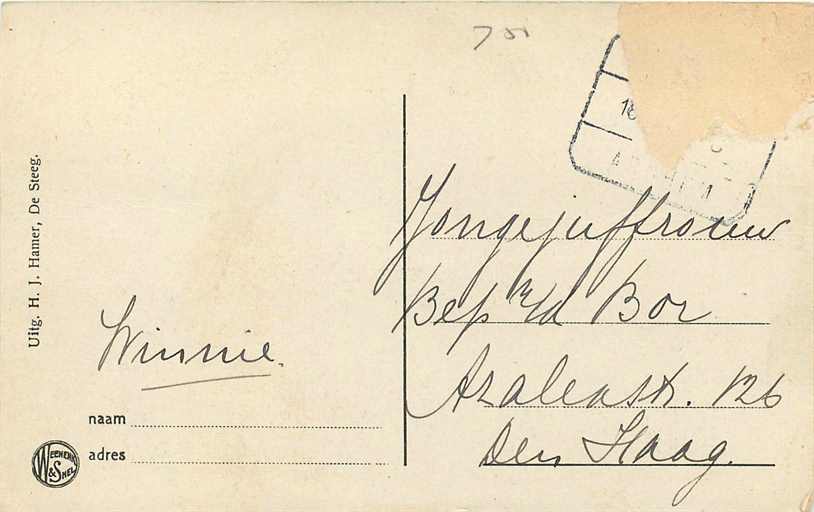 Uitg. H. J. Hamer, De Steeg.
Winnie.
naam
adres
WEENENK & SNEL
Jongejuffrouw
Bep v/d Bor
Azaleastr. 126
Den Haag.